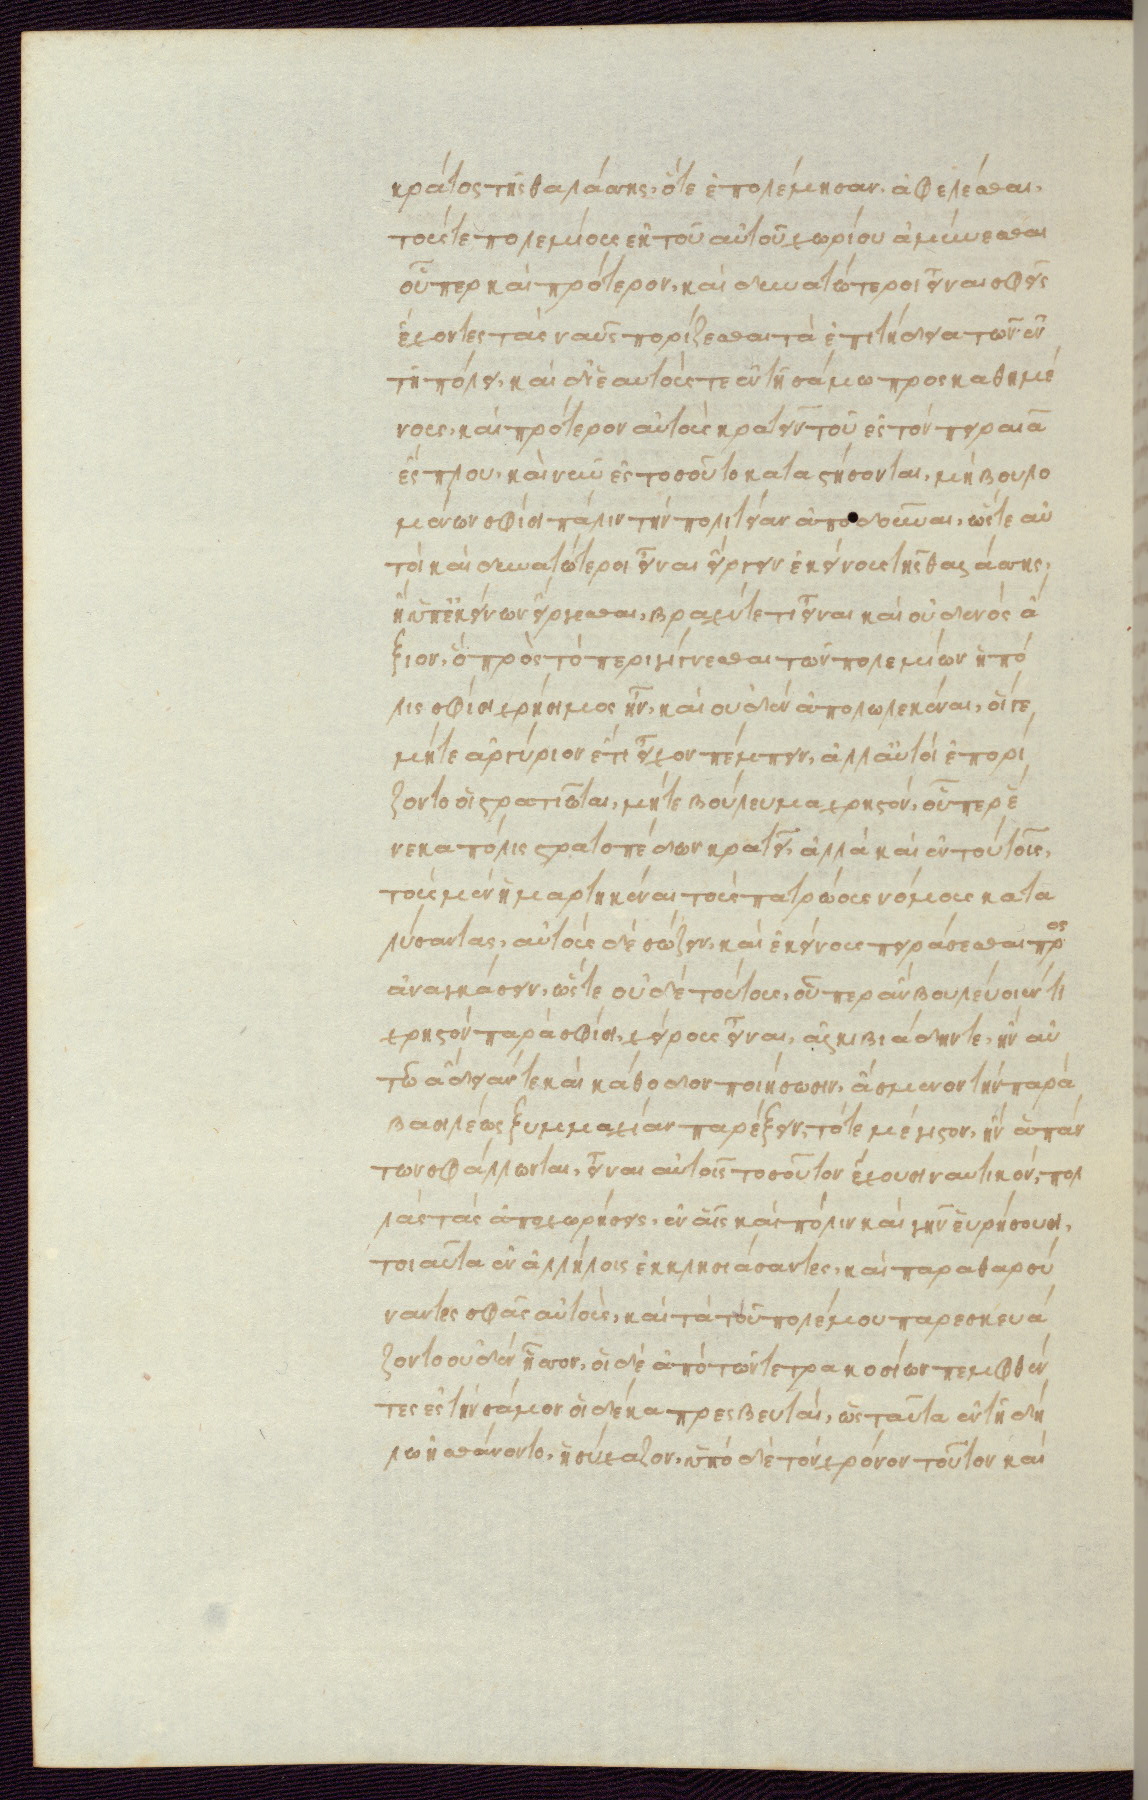 κράτος τῆς θαλάσσης, ὅτε ἐπολέμησαν, ἀφελέσθαι,
τούς τε πολεμίους ἐκ τοῦ αὐτοῦ χωρίου ἀμύνεσθαι
οὗπερ καὶ πρότερον, καὶ δυνατώτεροι εἶναι σφεῖς
ἔχοντες τὰς ναῦς πορίζεσθαι τὰ ἐπιτήδεια τῶν ἐν
τῇ πόλει, καὶ δι' ἑαυτούς τε ἐν τῇ σάμω προσκαθημέ
νους, καὶ πρότερον αὐτοὺς κρατεῖν τοῦ ἐς τὸν πειραιᾶ
ἔσπλου, καὶ νῦν ἐς τοσοῦτο καταστήσονται, μὴ βουλο
μένων σφίσι πάλιν τὴν πολιτείαν ἀποδοῦναι, ὥστε αὐ
τοὶ καὶ δυνατώτεροι εἶναι εἴργειν ἐκείνους τῆς θαλάσσης,
ἢ ὑπ' ἐκείνων εἴργεσθαι, βραχύ τε τι εἶναι καὶ οὐδενὸς ἄ
ξιον, ὃ πρὸς τὸ περιγίγνεσθαι τῶν πολεμίων ἡ πό
λις σφίσι χρήσιμος ἦν, καὶ οὐδὲν ἀπολωλεκέναι, οἵ γε
μήτε ἀργύριον ἔτι εἶχον πέμπειν, ἀλλ' αὐτοὶ ἐπορί
ζοντο οἱ στρατιῶται, μήτε βούλευμα χρηστόν, οὗπερ ἕ
νεκα πόλις στρατοπέδων κρατεῖ, ἀλλὰ καὶ ἐν τούτοις,
τοὺς μὲν ἡμαρτηκέναι τοὺς πατρώους νόμους κατα
λύσαντας, αὐτοὺς δὲ σώζειν, καὶ ἐκείνους πειράσεσθαι προς
ἀναγκάσειν, ὥστε οὐδὲ τούτους, οἵπερ ἂν βουλεύσιέν τι
χρηστὸν παρὰ σφίσι, χείρους εἶναι, ἀλκιβιάδην τε, ἢν αὐ
τῶ ἄδειάν τε καὶ κάθοδον ποιήσωσιν, ἄσμενον τὴν παρὰ
βασιλέως ξυμμαχίαν παρέξειν, τότε μέγιστον, ἢν ἁπάν
των σφάλλωνται, εἶναι αὐτοῖς τοσοῦτον ἔχουσι ναυτικόν, πολ
λὰς τὰς ἀποχωρήσεις, ἐν αἷς καὶ πόλιν καὶ γῆν εὑρήσουσι,
τοιαῦτα ἐν ἀλλήλοις ἐκκλησιάσαντες, καὶ παραθαρσύ
ναντες σφᾶς αὐτούς, καὶ τὰ τοῦ πολέμου παρεσκευά
ζοντο οὐδὲν ἧσσον, οἱ δὲ ἀπὸ τῶν τετρακοσίων πεμφθέν
τες ἐς τὴν σάμον οἱ δέκα πρεσβευταί, ὡς ταῦτα ἐν τῇ δή
λω ἠσθάνοντο, ἡσύχαζον, ὑπὸ δὲ τὸν χρόνον τοῦτον καὶ